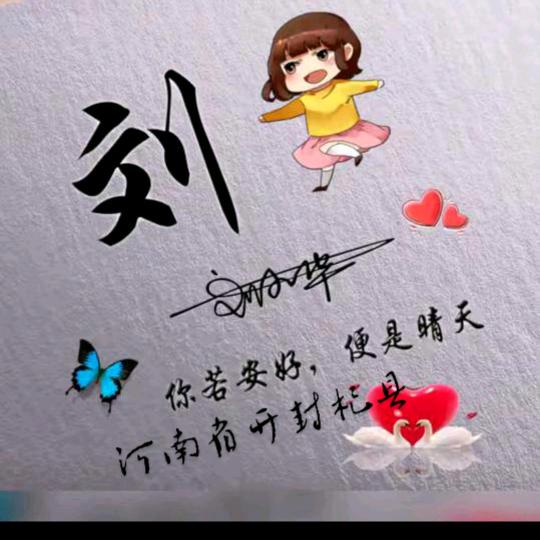 刘
你若安好，便是晴天
河南省开封杞县